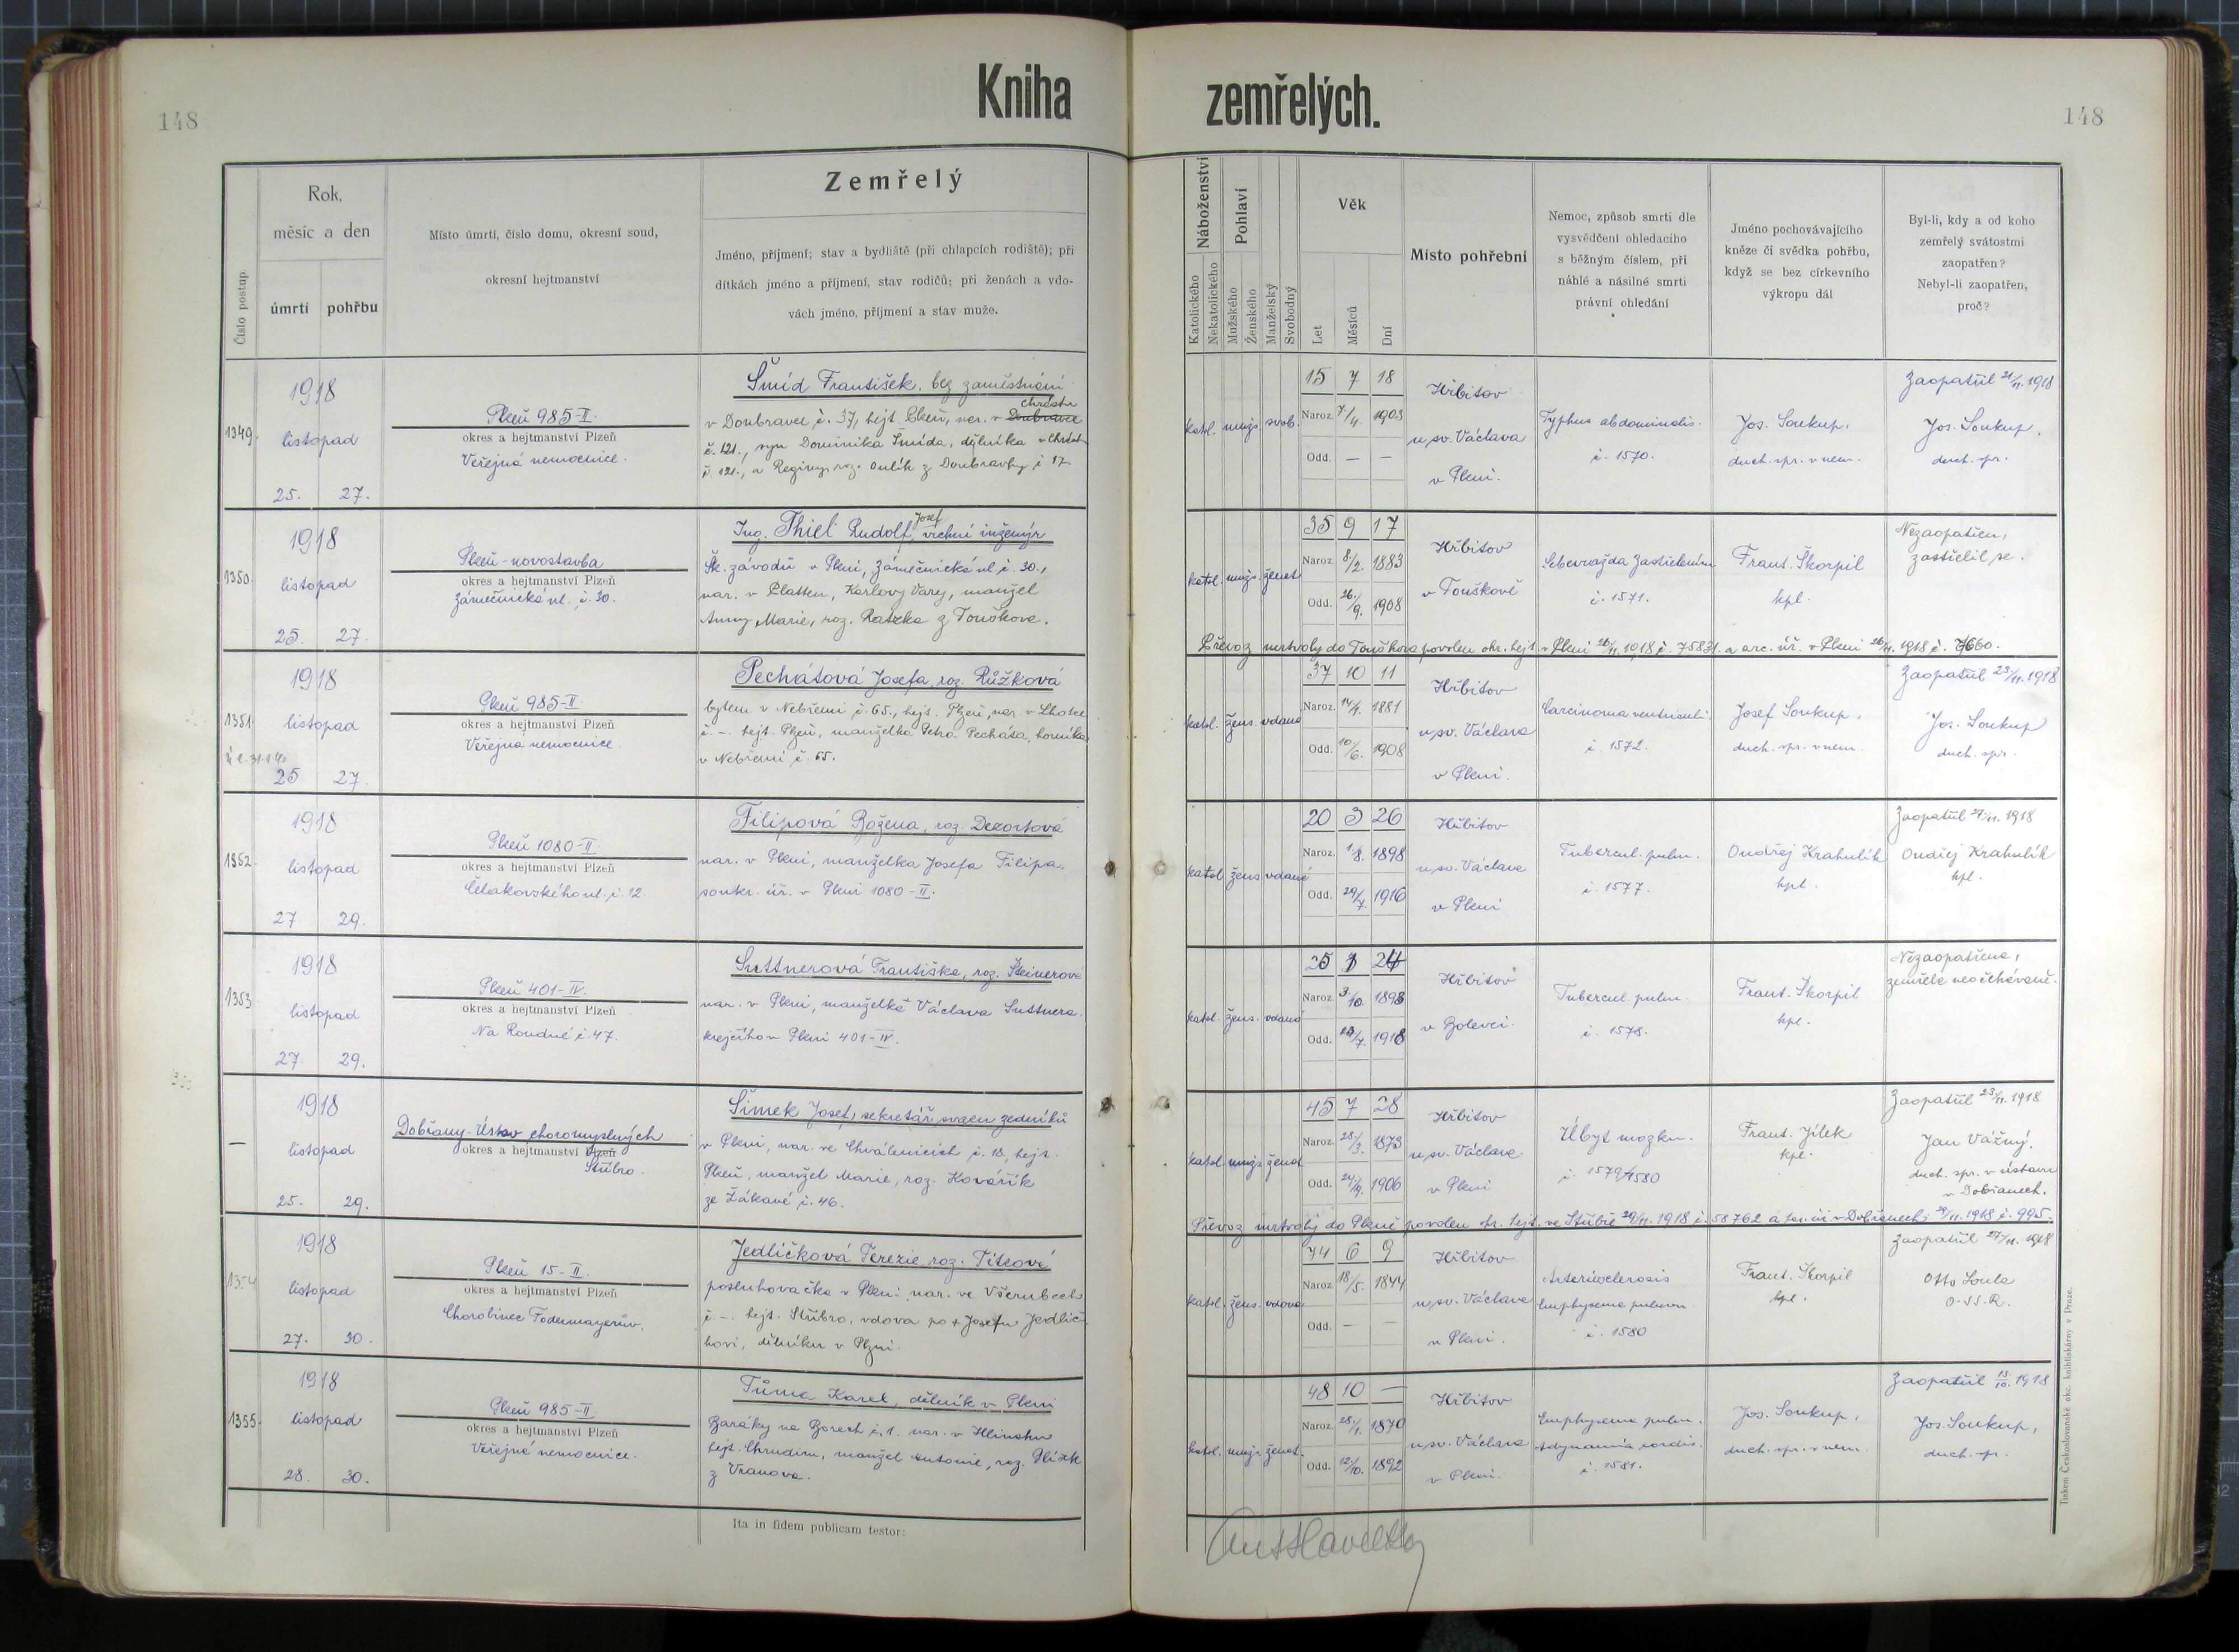 148
Kniha zemřelých.
148
Číslo postup.
Rok, měsíc a den
úmrtí
pohřbu
Místo úmrtí, číslo domu, okresní soud,
okresní hejtmanství
Zemřelý
Jméno, příjmení; stav a bydliště (při chlapcích rodiště); při
dítkách jméno a příjmení, stav rodičů; při ženách a vdo-
vách jméno, příjmení a stav muže.
Náboženství
Katolického
Nekatolického
Pohlaví
Mužského
Ženského
Manželský
Svobodný
Věk
Let
Měsíců
Dní
Místo pohřební
Nemoc, způsob smrti dle
vysvědčení ohledacího
s běžným číslem, při
náhlé a násilné smrti
právní ohledání
Jméno pochovávajícího
kněze či svědka pohřbu,
když se bez církevního
výkropu dál
Byl-li, kdy a od koho
zemřelý svátostmi
zaopatřen?
Nebyl-li zaopatřen,
proč?
1349.
1918
listopad
25. 27.
Plzeň 985-II.
okres a hejtmanství Plzeň
Veřejná nemocnice.
Šmíd František, bez zaměstnání
chrástu
v Doubravce č. 37, hejt. Plzeň, nar. v Doubravce
č. 121., syn Dominika Šmída, dělníka v Chrástu
č. 121., a Reginy, roz. Oulík z Doubravky č 17.
katol. muž. svob.
15 7 18
Naroz. 7/4. 1903
Odd. — —
Hřbitov
u sv. Václava
v Plzni.
Typhus abdominalis.
č. 1570.
Jos. Soukup,
duch. spr. v nem.
Zaopatřil 21/11. 1918
Jos. Soukup,
duch. spr.
1350.
1918
listopad
25. 27.
Plzeň - novostavba
okres a hejtmanství Plzeň
Zámečnická ul. č. 30.
Josef
Ing. Thiel Rudolf, vrchní inženýr
Šk. závodů v Plzni, Zámečnická ul. č. 30.,
nar. v Platten, Karlovy Vary, manžel
Anny Marie, roz. Ratzka z Touškova.
katol. mužs. ženat
35 9 17
Naroz. 8/2. 1883
Odd. 26./9. 1908
Hřbitov
v Touškově
Sebevražda zastřelením
č. 1571.
Frant. Škorpil
kpl.
Nezaopatřen,
zastřelil se.
Převoz mrtvoly do Touškova povolen okr. hejt. v Plzni 26/11. 1918 č. 75831. a arc. úř. v Plzni 26/11. 1918 č. 7660.
1351.
1918
listopad
25 27.
Plzeň 985-II.
okres a hejtmanství Plzeň
Veřejná nemocnice.
Pechátová Josefa, roz. Růžková
bytem v Nebřemi č. 65., hejt. Plzeň, nar. v Lhotce
č. -. hejt. Plzeň, manželka Petra Pecháta, horníka
v Nebřemi č. 65.
katol. žens. vdaná
37 10 11
Naroz. 14/1. 1881
Odd. 10/6. 1908
Hřbitov
u sv. Václava
v Plzni.
Carcinoma ventriculi.
č. 1572.
Josef Soukup,
duch. spr. v nem.
Zaopatřil 23/11. 1918
Jos. Soukup
duch. spr.
1352.
1918
listopad
27 29.
Plzeň 1080-II.
okres a hejtmanství Plzeň
Čelakovského ul. č. 12.
Filipová Božena, roz. Dezortová
nar. v Plzni, manželka Josefa Filipa,
soukr. úř. v Plzni 1080-II.
katol. žens. vdaná
20 3 26
Naroz. 1/8. 1898
Odd. 29/7. 1916
Hřbitov
u sv. Václava
v Plzni
Tubercul. pulm.
č. 1577.
Ondřej Krahulík
kpl.
Zaopatřil 27/11. 1918
Ondřej Krahulík
kpl.
1353
1918
listopad
27. 29.
Plzeň 401-IV.
okres a hejtmanství Plzeň
Na Roudné č. 47.
Suttnerová Františka, roz. Šteinerová
nar. v Plzni, manželka Václava Suttnera,
krejčího v Plzni 401-IV.
katol. žens. vdaná
25 1 24
Naroz. 3/10. 1893
Odd. /7. 1918
Hřbitov
v Bolevci.
Tubercul. pulm.
č. 1578.
Frant. Škorpil
kpl.
Nezaopatřena,
zemřela neočekávaně.
—
1918
listopad
25. 29.
Dobřany-Ústav choromyslných
okres a hejtmanství Plzeň
Stříbro.
Šimek Josef, sekretář svazu zedníků
v Plzni, nar. ve Chválenicích č. 18, hejt.
Plzeň, manžel Marie, roz. Kovářík
ze Žákavé č. 46.
katol. mužs. ženat.
45 7 28
Naroz. 28/3. 1873
Odd. 24/9. 1906
Hřbitov
u sv. Václava
v Plzni
Úbyt mozku.
č. 1579/1580
Frant. Jílek
kpl.
Zaopatřil 23/11. 1918
Jan Vážný,
duch. spr. v ústavu
v Dobřanech.
Převoz mrtvoly do Plzně povolen okr. hejt. ve Stříbře 29/11. 1918 č. 58762 a far. úř. v Dobřanech 29/11. 1918 č. 995.
1354
1918
listopad
27. 30.
Plzeň 15-II.
okres a hejtmanství Plzeň
Chorobinec Fodermayerův.
Jedličková Terezie, roz. Titzová
posluhovačka v Plzni, nar. ve Všerubech
č. -. hejt. Stříbro, vdova po + Josefu Jedlič-
kovi, dělníku v Plzni.
katol. žens. vdova
74 6 9
Naroz. 18/5. 1844
Odd. — —
Hřbitov
u sv. Václava
v Plzni.
Arteriosclerosis
Emphysema pulmon.
č. 1580
Frant. Škorpil
kpl.
Zaopatřil 27/11. 1918
Otto Soula
1355.
1918
listopad
28. 30.
Plzeň 985-II
okres a hejtmanství Plzeň
Veřejná nemocnice.
Tůma Karel, dělník v Plzni
Baráky na Borech č. 1. nar. v Hlinsku
hejt. Chrudim, manžel Antonie, roz. Hlízek
z Vranova.
katol. mužs. ženat.
48 10 —
Naroz. 28./1. 1870
Odd. 12/10. 1892
Hřbitov
u sv. Václava
v Plzni.
Emphysema pulm.
Adynamia cordis.
č. 1581.
Jos. Soukup,
duch. spr. v nem.
Zaopatřil 13/10. 1918
Jos. Soukup,
duch. spr.
Ita in fidem publicam testor:
Tiskem Československé akc. knihtiskárny v Praze.